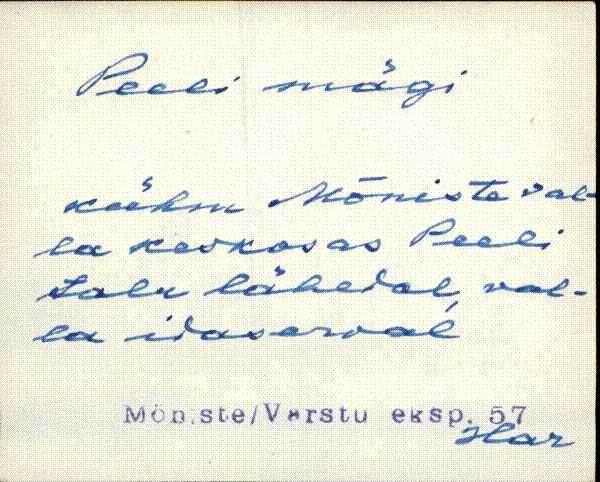 Peeli mägi
kühm Mõniste val-
la keskosas Peeli
talu lähedal, val-
la idaserval
Mõniste/Varstu eksp. 57
Har